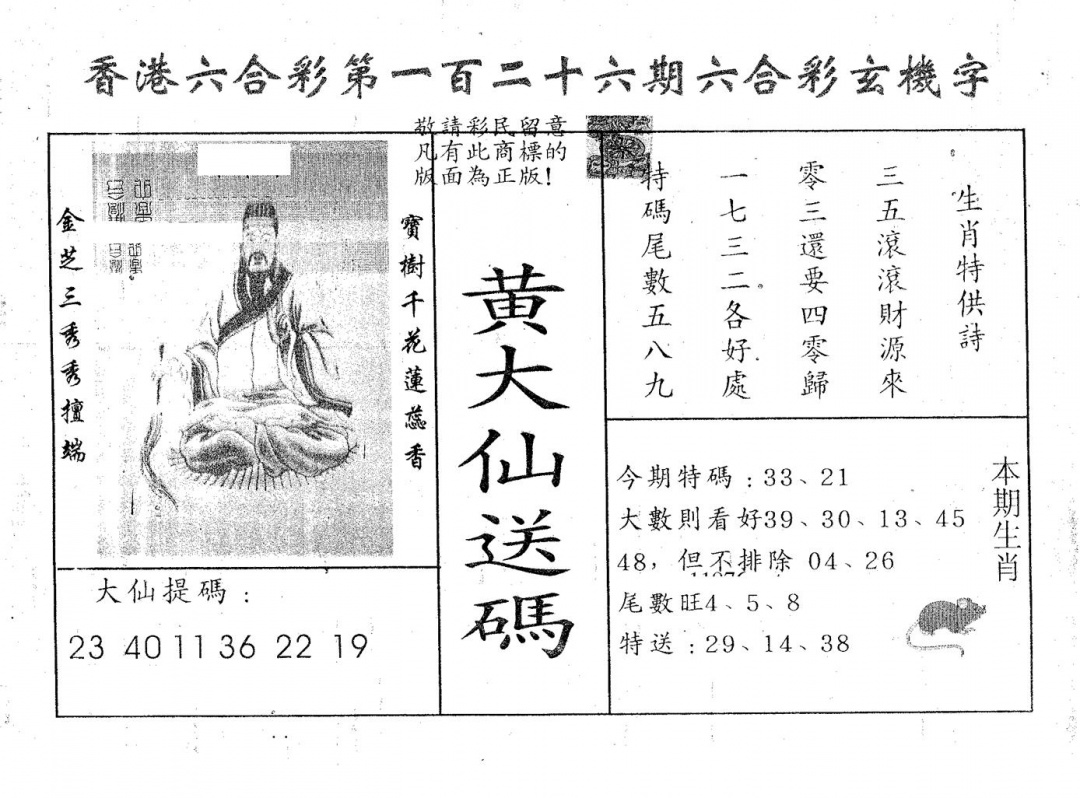 香港六合彩第一百二十六期六合彩玄機字
敬請彩民留意
凡有此商標的
版面為正版!
寶樹千花蓮蕊香
金芝三秀秀擅端
黄大仙送碼
生肖特供詩
三五滾滾財源來
零三還要四零歸
一七三二各好處
特碼尾數五八九
大仙提碼：
23 40 11 36 22 19
本期生肖
今期特碼：33、21
大數則看好39、30、13、45
48，但不排除 04、26
尾數旺4、5、8
特送：29、14、38